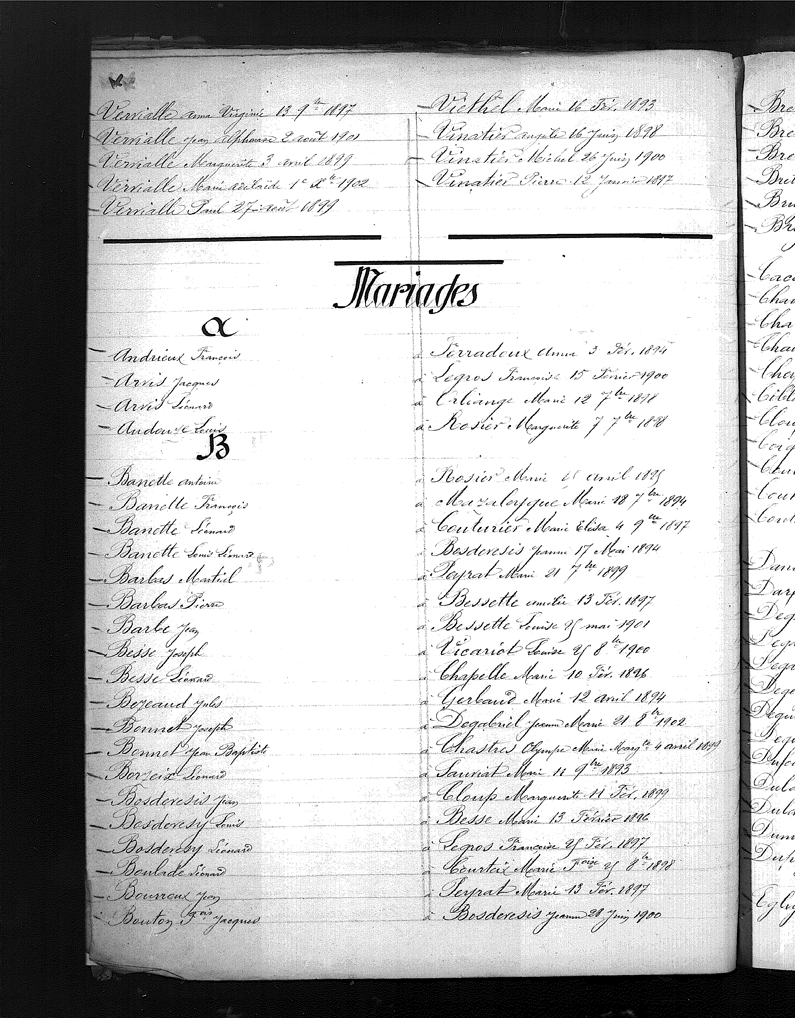 Vervialle Anna Virginie 13 9bre 1897
Vervialle Jean Alphonse 2 août 1901
Vervialle Marguerite 3 avril 1899
Vervialle Marie adélaïde 1e Xbre 1902
Vervialle Paul 27 août 1899
Viethel Marie 16 Fév. 1893
Vinatier 16 Juin 1898
Vinatier Michel 26 Juin 1900
Vinatier Pierre 12 Janvier 1897
Mariages
A
Andrieux François à Forradoux Anna 3 Fév. 1894
Arvis Jacques à Legros Françoise 15 Février 1900
Arvis Léonard à Orliange Marie 12 7bre 1898
Andouze Louis à Rosier Marguerite 7 7bre 1898
B
Banette antoine à Rosier Marie avril
Banette François à Mazaleygue Marie 18 7bre 1894
Banette Léonard à Couturier Marie Elisa 4 9bre 1897
Banette Louis Léonard à Bosderesis Jeanne 17 Mai 1894
Barbas Martiel à Peyrat Marie 21 7bre 1899
Barbas Pierre à Bessette amélie 13 Fév. 1897
Barbe Jean à Bessette Louise 25 mai 1901
Besse Joseph à Vicariot Louise 25 8bre 1900
Besse Léonard à Chapelle Marie 10 Fév. 1896
Bezeaud Jules à Gerbaud Marie 12 avril 1894
Bonnet Joseph à Degabriel Jeanne Marie 21 8bre 1902
Bonnet Jean Baptiste à Chastres Olympe Marie Margte 4 avril 1899
Borzeix Léonard à Sauriat Marie 11 9bre 1893
Bosderesis Jean à Cloup Marguerite 11 Fév. 1899
Bosderesy Louis à Besse Marie 13 Février 1896
Bosderesy Léonard à Legros Françoise 25 Fév. 1897
Boulade Léonard à Courteix Marie Foise 25 8bre 1898
Bourroux Jean à Peyrat Marie 13 Fév. 1897
Bouton Fçois Jacques à Bosderesis Jeanne 28 Juin 1900